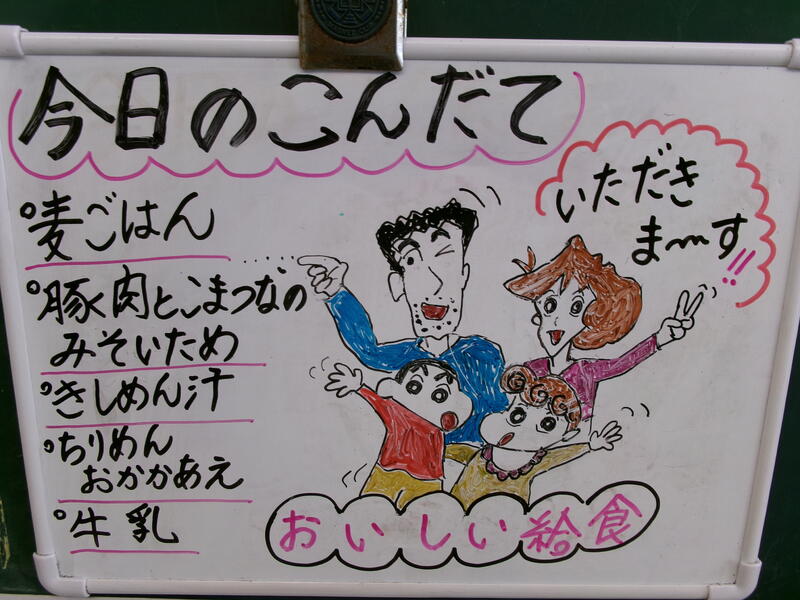 今日のこんだて
いただき
ま〜す!!
麦ごはん
豚肉とこまつなの
みそいため
きしめん汁
ちりめん
おかかあえ
牛乳
おいしい給食